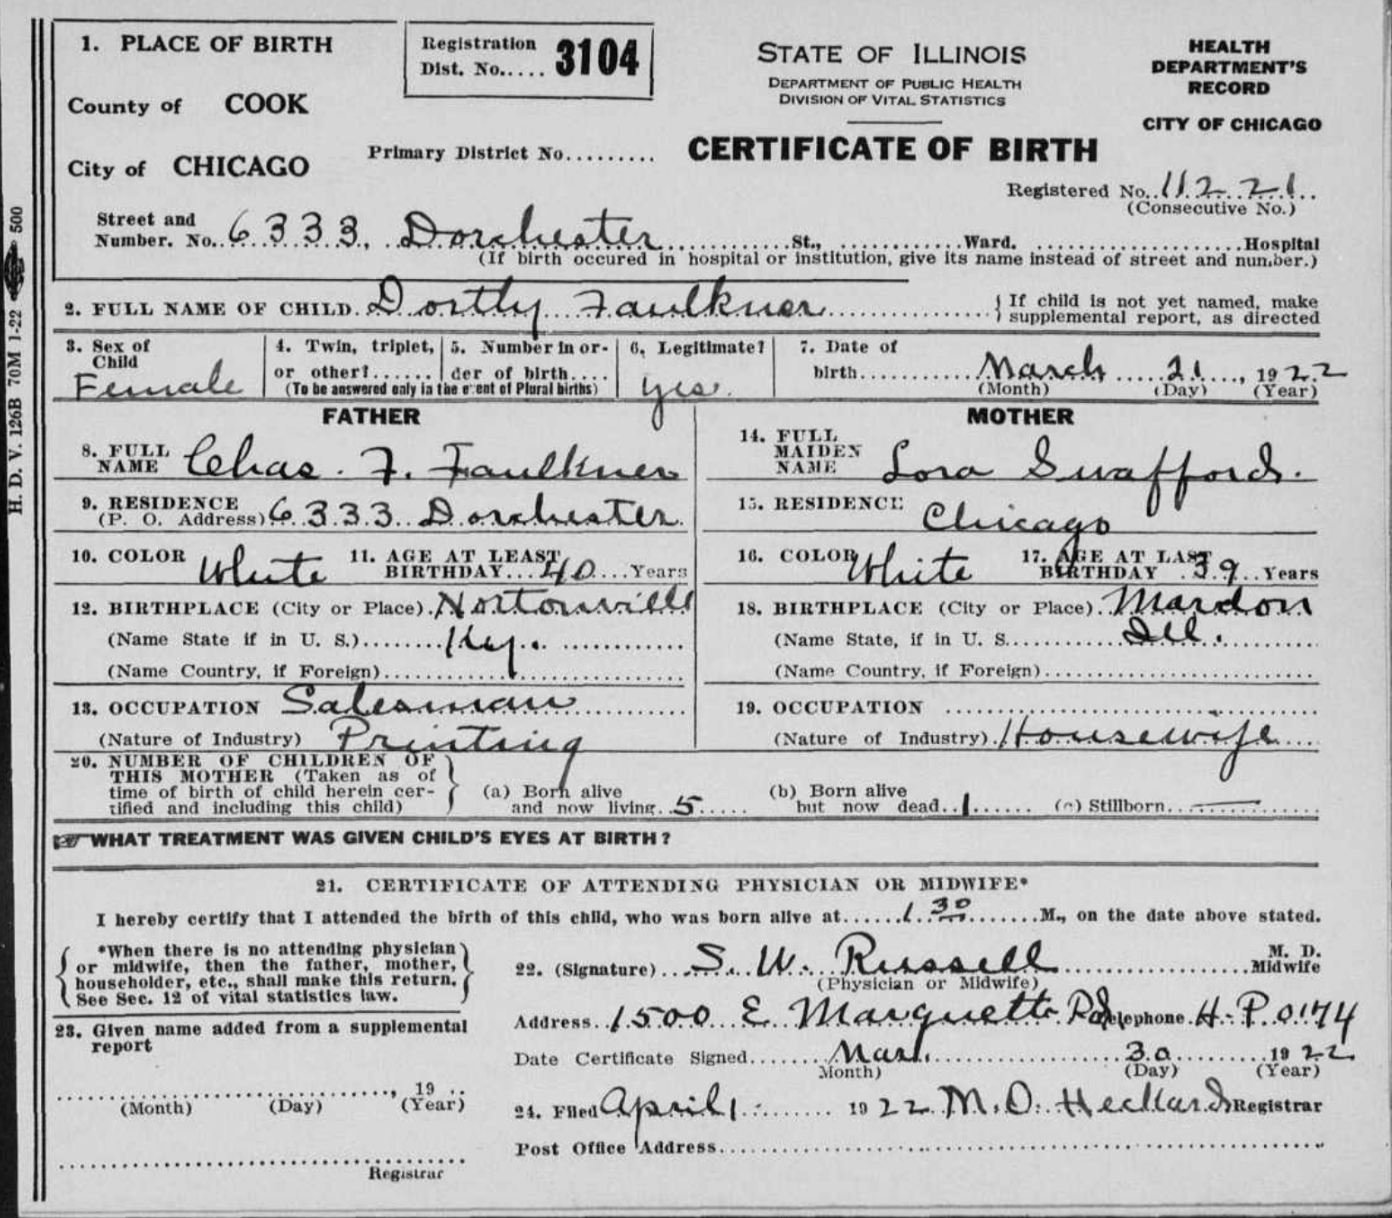 1. PLACE OF BIRTH
Registration
Dist. No..... 3104
STATE OF ILLINOIS
DEPARTMENT OF PUBLIC HEALTH
DIVISION OF VITAL STATISTICS
HEALTH
DEPARTMENT'S
RECORD
CITY OF CHICAGO
County of COOK
City of CHICAGO
Primary District No.........
CERTIFICATE OF BIRTH
Registered No. 11221
(Consecutive No.)
Street and
Number. No. 6333. Dorchester St., Ward. Hospital
(If birth occured in hospital or institution, give its name instead of street and number.)
2. FULL NAME OF CHILD. Dortly Faulkner
{ If child is not yet named, make
supplemental report, as directed
3. Sex of
Child
Female
4. Twin, triplet,
or other?......
5. Number in or-
der of birth....
(To be answered only in the event of Plural births)
6. Legitimate?
yes.
7. Date of
birth........... March 21, 1922
(Month) (Day) (Year)
FATHER
8. FULL
NAME Chas. F. Faulkner
9. RESIDENCE
(P. O. Address) 6333 Dorchester
10. COLOR White 11. AGE AT LEAST
BIRTHDAY... 40 ...Years
12. BIRTHPLACE (City or Place). Nortonville
(Name State if in U. S.)....... Ky.
(Name Country, if Foreign)
13. OCCUPATION Salesman
(Nature of Industry) Printing
MOTHER
14. FULL
MAIDEN
NAME Lora Swafford.
15. RESIDENCE
Chicago
16. COLOR White 17. AGE AT LAST
BIRTHDAY 39 Years
18. BIRTHPLACE (City or Place).
(Name State, if in U. S. Ill.
(Name Country, if Foreign)
19. OCCUPATION
(Nature of Industry). Housewife
20. NUMBER OF CHILDREN OF
THIS MOTHER (Taken as of
time of birth of child herein cer-
tified and including this child)
(a) Born alive
and now living. 5
(b) Born alive
but now dead. 1
(c) Stillborn. —
WHAT TREATMENT WAS GIVEN CHILD'S EYES AT BIRTH?
21. CERTIFICATE OF ATTENDING PHYSICIAN OR MIDWIFE*
I hereby certify that I attended the birth of this child, who was born alive at...... 1 30 .......M., on the date above stated.
*When there is no attending physician
or midwife, then the father, mother,
householder, etc., shall make this return.
See Sec. 12 of vital statistics law.
22. (Signature) S. W. Russell M. D.
Midwife
(Physician or Midwife)
Address. 1500 E. Marquette Rd. Telephone. H.P. 0174
Date Certificate Signed....... Mar. 30 1922
Month) (Day) (Year)
23. Given name added from a supplemental
report
, 19 ..
(Month) (Day) (Year)
Registrar
24. Filed April 1 1922 M. O. Heckard Registrar
Post Office Address
H. D. V. 126B 70M 1-22 500